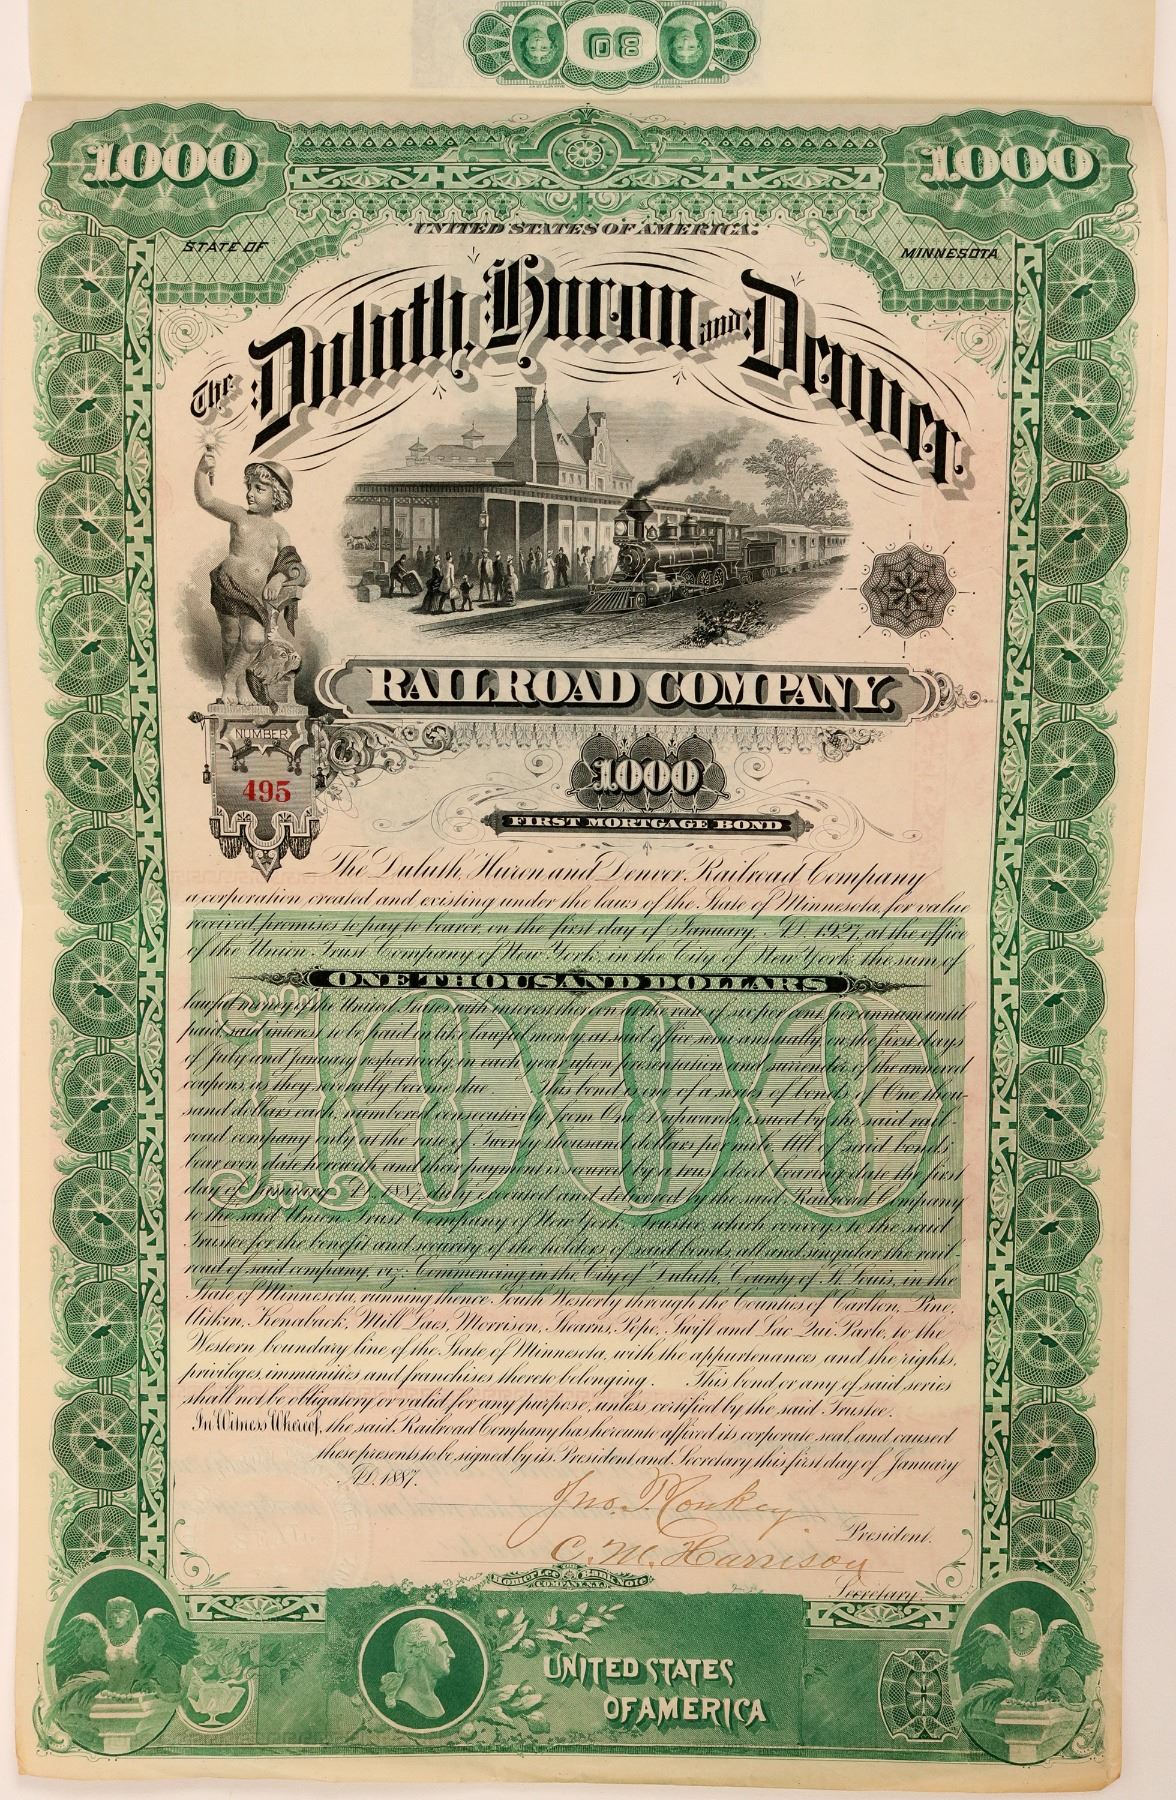 1000
1000
UNITED STATES OF AMERICA.
STATE OF
MINNESOTA
The Duluth, Huron and Denver
RAILROAD COMPANY.
NUMBER
495
1000
FIRST MORTGAGE BOND
The Duluth, Huron and Denver Railroad Company
a corporation created and existing under the laws of the State of Minnesota, for value
received promises to pay to bearer, on the first day of January, A.D. 1927, at the office
of the Union Trust Company of New York, in the City of New York, the sum of
ONE THOUSAND DOLLARS
lawful money of the United States with interest thereon at the rate of six per cent. per annum until
paid, said interest to be paid in like lawful money at said office semi annually, on the first days
of July and January respectively, in each year upon presentation and surrender of the annexed
coupons, as they severally become due. This bond is one of a series of bonds of One thou-
sand dollars each, numbered consecutively from One (1) upwards, issued by the said rail-
road company only at the rate of Twenty thousand dollars per mile. All of said bonds
bear even date herewith and their payment is secured by a trust deed bearing date the first
day of January, A.D. 1887, duly executed and delivered by the said Railroad Company
to the said Union Trust Company of New York, Trustee, which conveys to the said
Trustee for the benefit and security of the holders of said bonds, all and singular the rail-
road of said company, viz: Commencing in the City of Duluth, County of St. Louis, in the
State of Minnesota, running thence South Westerly through the Counties of Carlton, Pine,
Aitkin, Kenaback, Mill Lacs, Morrison, Stearns, Pope, Swift and Lac Qui Parle, to the
Western boundary line of the State of Minnesota, with the appurtenances, and the rights,
privileges, immunities and franchises thereto belonging. This bond or any of said series
shall not be obligatory or valid for any purpose, unless certified by the said Trustee.
In Witness Whereof, the said Railroad Company has hereunto affixed its corporate seal, and caused
these presents to be signed by its President and Secretary this first day of January
A.D. 1887.
President.
C. M. Harrison
Secretary.
Homer Lee Bank Note
COMPANY, N.Y.
UNITED STATES
OF AMERICA